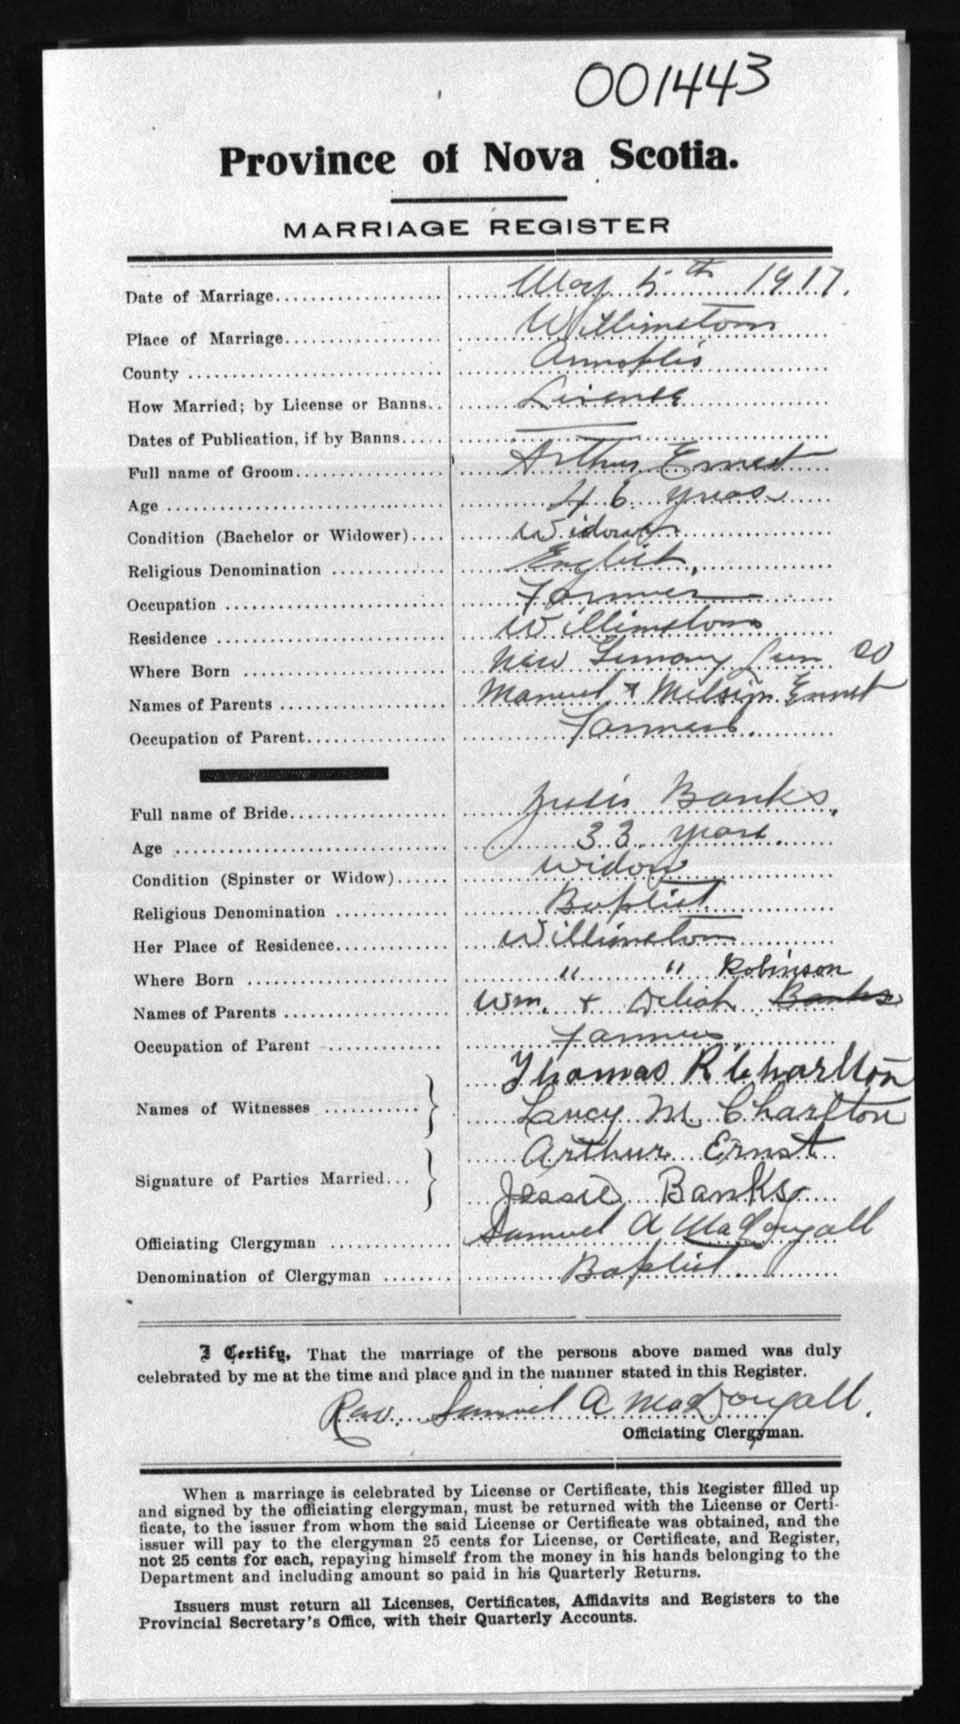 001443
Province of Nova Scotia.
MARRIAGE REGISTER
Date of Marriage May 5th 1917.
Place of Marriage Willimstom
County Annoplis
How Married; by License or Banns.. Lisence
Dates of Publication, if by Banns —
Full name of Groom Arthur Ernest
Age 46 years
Condition (Bachelor or Widower) Widower
Religious Denomination English.
Occupation Farmer
Residence Willimstom
Where Born New Co
Names of Parents Manuel + Ernest
Occupation of Parent Farmers.
Full name of Bride Banks.
Age 33 years.
Condition (Spinster or Widow) widow
Religious Denomination Baptist
Her Place of Residence Willimston
Where Born " " Robinson
Names of Parents Wm. + Deliah Banks
Occupation of Parent Farmers.
Names of Witnesses Thomas R Charlton
Lucy M Charlton
Signature of Parties Married... Arthur Ernst
Jessie Banks
Officiating Clergyman Samuel A MacDougall
Denomination of Clergyman Baptist
I Certify, That the marriage of the persons above named was duly
celebrated by me at the time and place and in the manner stated in this Register.
Rev. Samuel A MacDougall.
Officiating Clergyman.
When a marriage is celebrated by License or Certificate, this Register filled up
and signed by the officiating clergyman, must be returned with the License or Certi-
ficate, to the issuer from whom the said License or Certificate was obtained, and the
issuer will pay to the clergyman 25 cents for License, or Certificate, and Register,
not 25 cents for each, repaying himself from the money in his hands belonging to the
Department and including amount so paid in his Quarterly Returns.
Issuers must return all Licenses, Certificates, Affidavits and Registers to the
Provincial Secretary's Office, with their Quarterly Accounts.